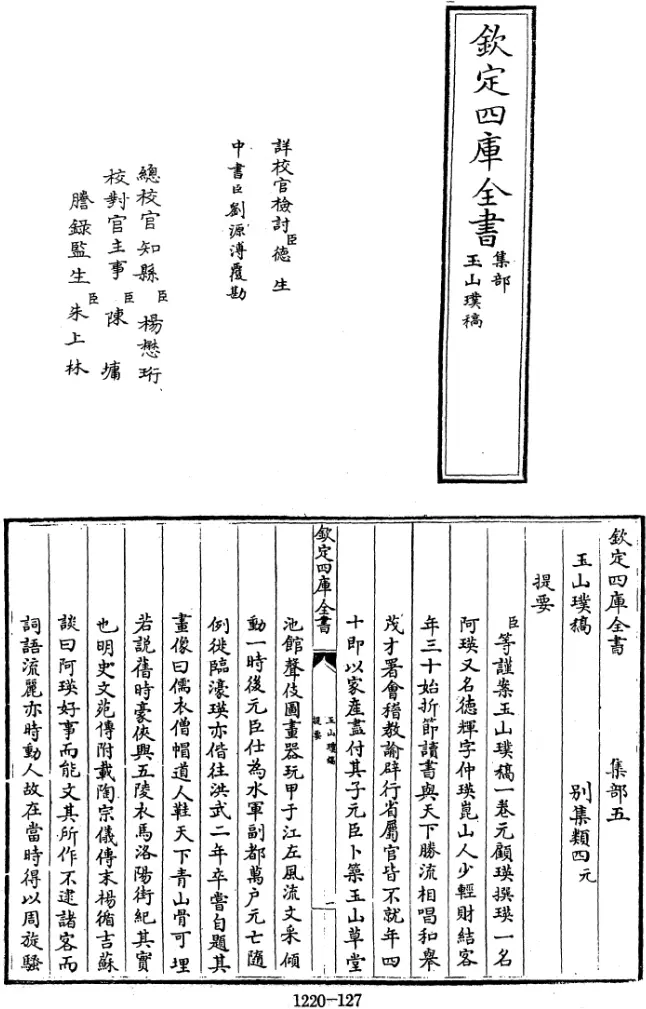 欽定四庫全書
集部
玉山璞稿
詳校官檢討臣德生
中書臣劉源溥覆勘
總校官知縣臣楊懋珩
校對官主事臣陳墉
謄錄監生臣朱上林
欽定四庫全書 集部五
玉山璞稿 別集類四元
提要
臣等謹案玉山璞稿一卷元顧瑛撰瑛一名
阿瑛又名德輝字仲瑛崑山人少輕財結客
年三十始折節讀書與天下勝流相唱和舉
茂才署會稽教諭辟行省屬官皆不就年四
十即以家產盡付其子元臣卜築玉山草堂
欽定四庫全書
玉山璞稿
提要
一
池館聲伎圖畫器玩甲于江左風流文采傾
動一時後元臣仕為水軍副都萬户元亡隨
例徙臨濠瑛亦偕往洪武二年卒嘗自題其
畫像曰儒衣僧帽道人鞋天下青山骨可埋
若說舊時豪俠興五陵衣馬洛陽街紀其實
也明史文苑傳附載陶宗儀傳末楊循吉蘇
談曰阿瑛好事而能文其所作不逮諸客而
詞語流麗亦時動人故在當時得以周旋騷
1220-127